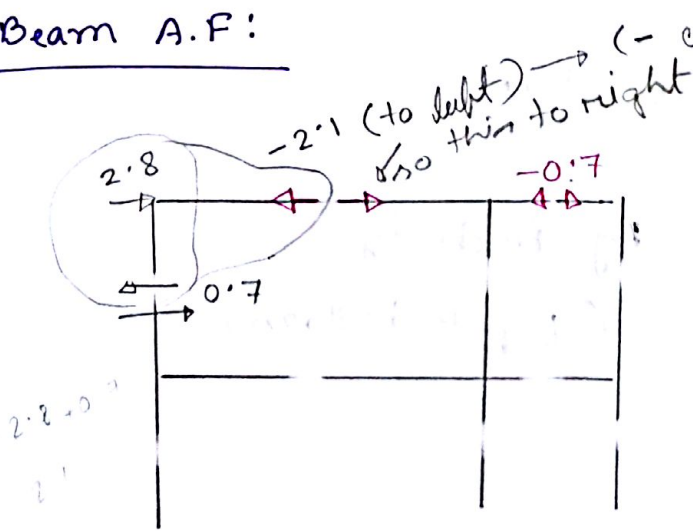 Beam A.F:
-2.1 (to left) → (-
so this to right
2.8
-0.7
0.7
2.8 - 0